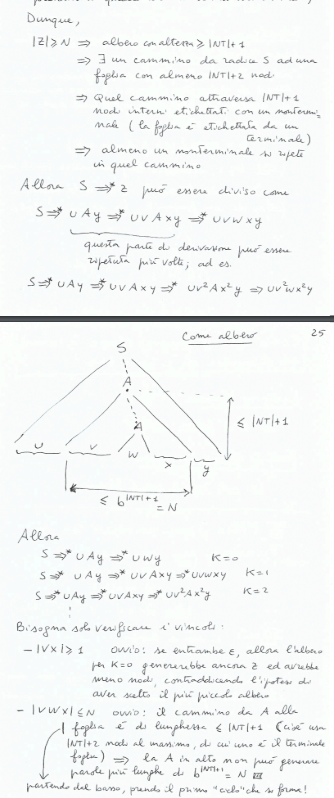 Dunque,
|Z| ≥ N ⇒ albero con altezza ≥ |NT|+1
⇒ ∃ un cammino da radice S ad una
foglia con almeno |NT|+2 nodi
⇒ Quel cammino attraversa |NT|+1
nodi interni etichettati con un nontermi-
nale (la foglia è etichettata da un
terminale)
⇒ almeno un nonterminale si ripete
in quel cammino
Allora S ⇒* z può essere diviso come
S ⇒* uAy ⇒* uvAxy ⇒* uvwxy
questa parte di derivazione può essere
ripetuta più volte; ad es.
S ⇒* uAy ⇒* uvAxy ⇒* uv²Ax²y ⇒ uv²wx²y
Come albero 25
S
A
A
≤ |NT|+1
u v w x y
≤ b^|NT|+1 = N
Allora
S ⇒* uAy ⇒* uwy K=0
S ⇒* uAy ⇒* uvAxy ⇒* uvwxy K=1
S ⇒* uAy ⇒* uvAxy ⇒* uv²Ax²y K=2
Bisogna solo verificare i vincoli:
- |vx| ≥ 1 ovvio: se entrambe ε, allora l'albero
per K=0 genererebbe ancora z ed avrebbe
meno nodi, contraddicendo l'ipotesi di
aver scelto il più piccolo albero
- |vwx| ≤ N ovvio: il cammino da A alla
foglia è di lunghezza ≤ |NT|+1 (cioè usa
|NT|+2 nodi al massimo, di cui uno è il terminale
foglia) ⇒ la A in alto non può generare
parole più lunghe di b^|NT|+1 = N
partendo dal basso, prendo il primo "ciclo" che si forma!